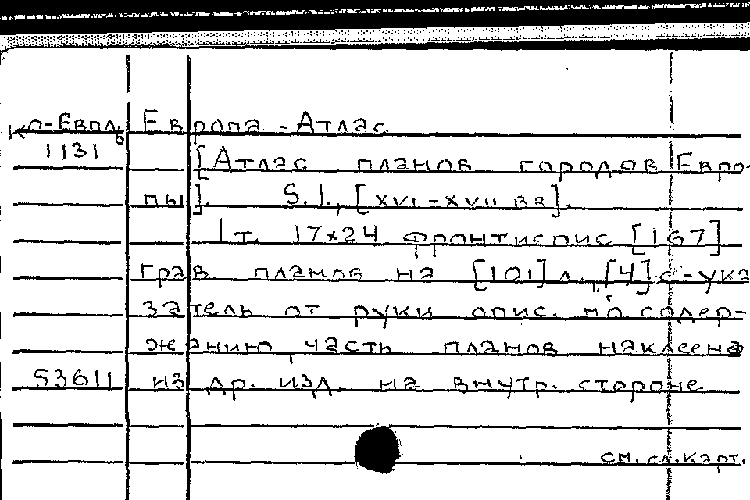 Ко-Европ Европа - Атлас
1131 [Атлас планов городов Евро-
пы]. S.l., [XVI-XVII вв].
1 т. 17×24 фронтиспис [167]
грав. планов на [101] л., [4] с-ука
затель от руки опис. по содер-
жанию часть планов наклеена
53611 из др. изд. на внутр. стороне
см. сл. карт.